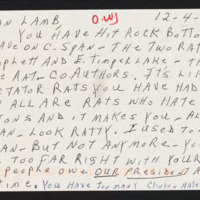 AN LAMB, O.W) 12-4-
YOU HAVE HIT ROCK BOTTO
AVE ON C-SPAN - THE TWO RAT
PPLETT AND E. TIMPELLAKE - TH
E RAT - CO AUTHORS. IT'S LI
CTATOR RATS YOU HAVE HAD
ALL ARE RATS WHO HATE
TONS AND IT MAKES YOU - AL
AN - LOOK RATTY. I USED TO
AN - BUT NOT ANYMORE - YO
TOO FAR RIGHT WITH YOUR
PEOPLE OWE OUR PRESIDENT A
TIME. YOU HAVE TOO MANY